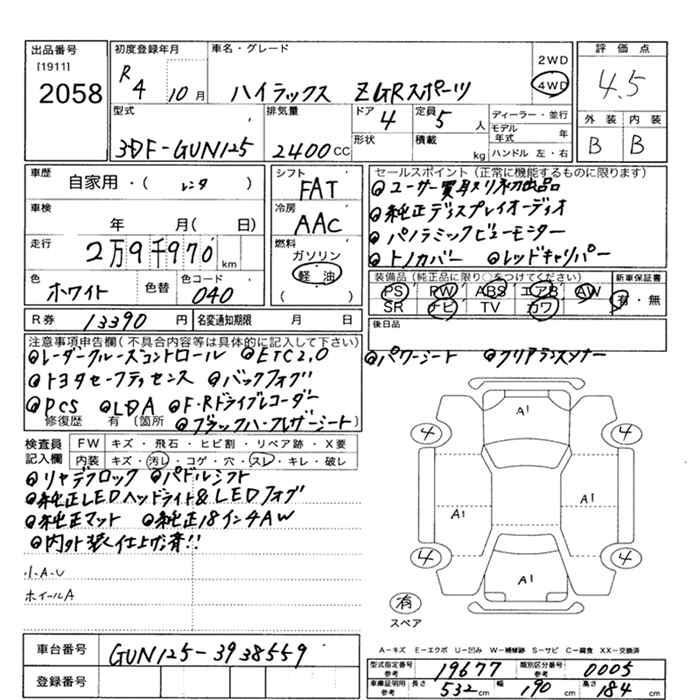 出品番号 初度登録年月 車名・グレード 評価点
[1911] R 4 10月 ハイラックス ZGRスポーツ 2WD 4WD 4.5
2058
型式 排気量 ドア 4 定員 5人 ディーラー・並行 外装 内装
3DF-GUN125 2400CC 形状 積載 kg モデル年式 年 B B
ハンドル 左・右
車歴 自家用・(レンタ) シフト FAT セールスポイント(正常に機能するものに限ります)
車検 年 月(日) 冷房 AAC ◎ユーザー買取り初出品
走行 2万9千970km 燃料 ガソリン 軽油 ( ) ◎純正ディスプレイオーディオ
◎パノラミックビューモニター
◎トノカバー ◎レッドキャリパー
色 ホワイト 色替 色コード 040 装備品(純正品に限り○をつけてください) 新車保証書
PS PW ABS エアB AW 有・無
SR ナビ TV カワ
R券 13390円 名変通知期限 月 日 後日品
注意事項申告欄(不具合内容等は具体的に記入して下さい)
◎レーダークルーズコントロール ◎ETC2.0 ◎パワーシート ◎クリアランスソナー
◎トヨタセーフティセンス ◎バックフォグ
◎PCS ◎LDA ◎F・Rドライブレコーダー
修復歴 有(箇所 ◎ブラックハーフレザーシート)
検査員記入欄 FW キズ・飛石・ヒビ割・リペア跡・X要
内装 キズ・汚レ・コゲ・穴・スレ・キレ・破レ
◎リヤデフロック ◎パドルシフト
◎純正LEDヘッドライト&LEDフォグ
◎純正マット ◎純正18インチAW
◎内外装仕上げ済!!
小A・U
ホイールA
A1
4 4
A1 A1
4 4
A1
有
スペア
A-キズ E-エクボ U-凹み W-補修跡 S-サビ C-腐食 XX-交換済
車台番号 GUN125-3938559
登録番号
型式指定番号 参考 19677 類別区分番号 参考 0005
車庫証明用 参考 長さ 532cm 幅 190cm 高さ 184cm